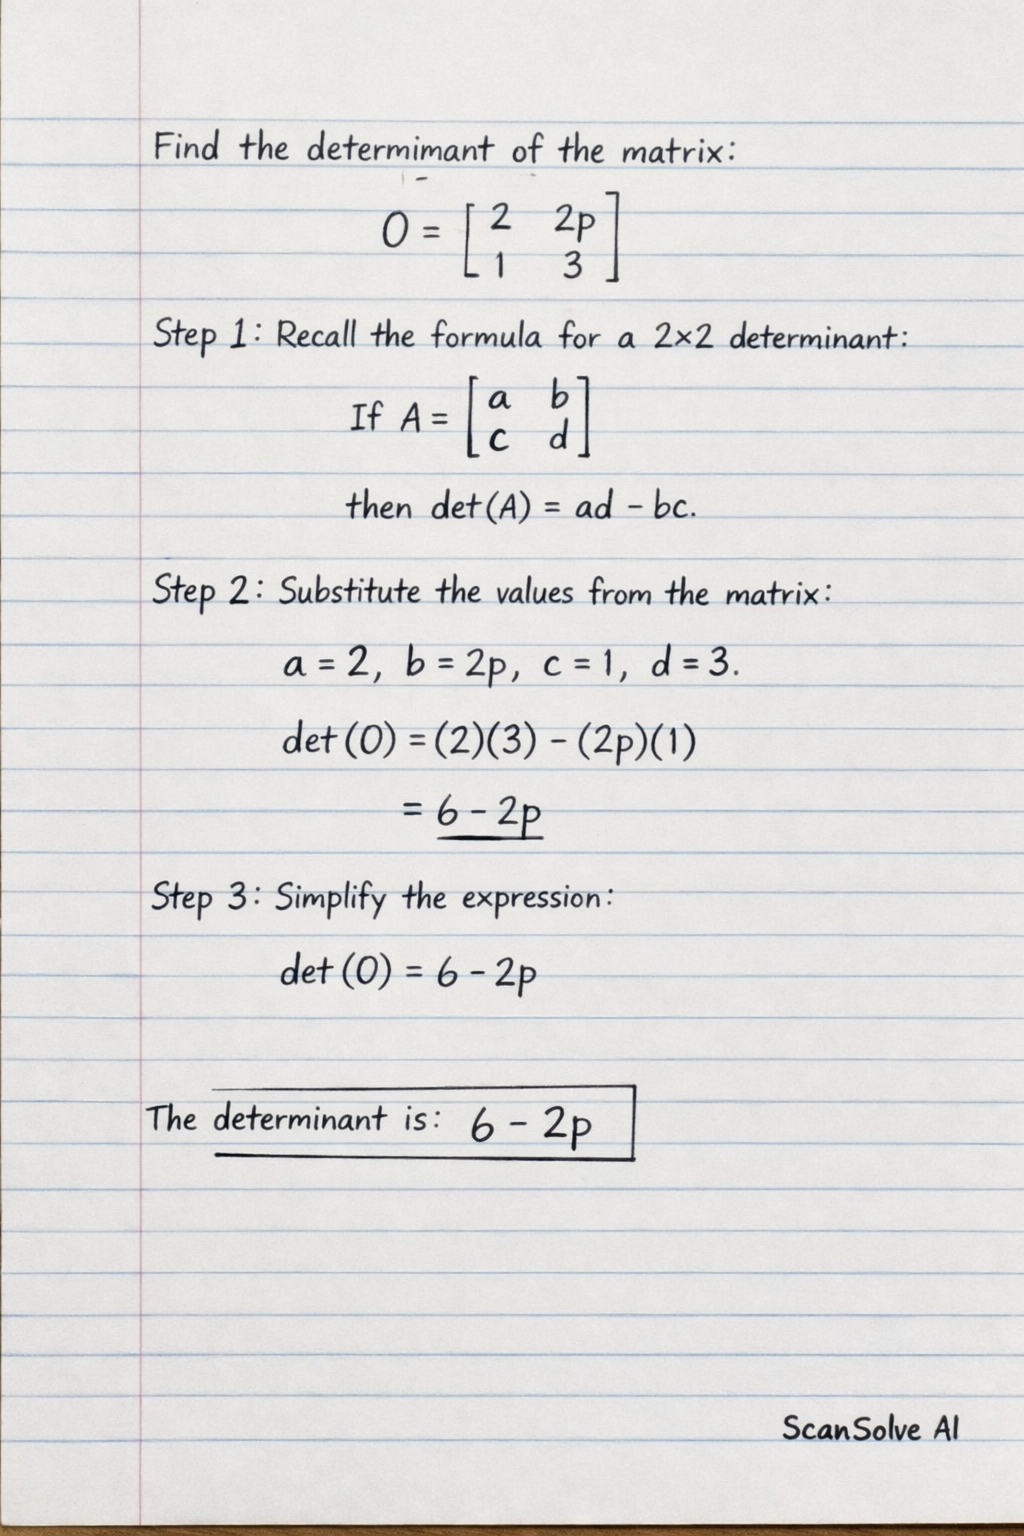 Find the determimant of the matrix:
O = [ 2 2p
1 3 ]
Step 1: Recall the formula for a 2×2 determinant:
If A = [ a b
c d ]
then det(A) = ad - bc.
Step 2: Substitute the values from the matrix:
a = 2, b = 2p, c = 1, d = 3.
det (O) = (2)(3) - (2p)(1)
= 6 - 2p
Step 3: Simplify the expression:
det (O) = 6 - 2p
The determinant is: 6 - 2p
ScanSolve AI